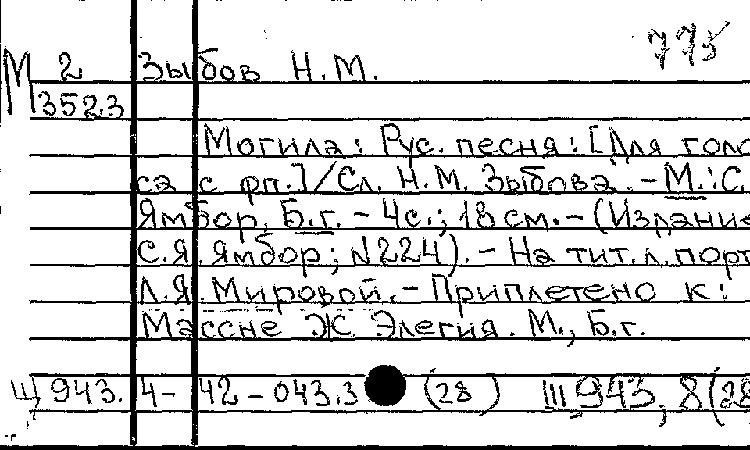 775
М 2 Зыбов Н.М.
3523
Могила: Рус. песня: [Для голо
са с фп.]/Сл. Н.М. Зыбова. - М.: С.
Ямбор, Б.г. - 4с.; 18см. - (Издание
С.Я. Ямбор; N224). - На тит.л. порт
Л.Я. Мировой. - Приплетено к:
Массне Ж. Элегия. М., Б.г.
Щ 943. 4-42-043.3 (28) Ш 943, 8(28